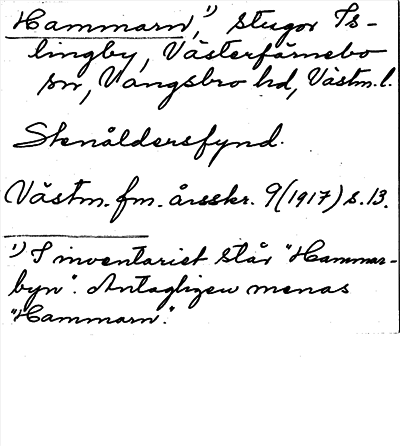 Hammarn,¹) stugor Is-
lingby, Västerfärnebo
sn, Vangsbro hd, Västm. l.
Stenåldersfynd.
Västm. fm. årsskr. 9(1917) s. 13.
¹) I inventariet står "Hammar-
byn". Antagligen menas
"Hammarn".